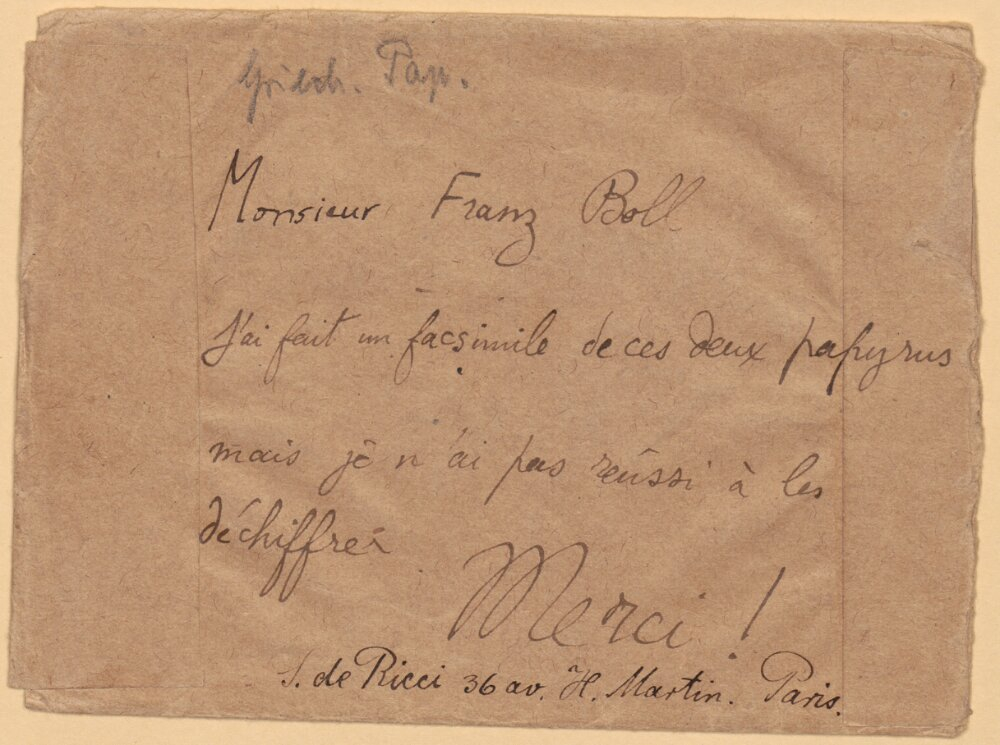 Griech. Pap.
Monsieur Franz Boll
J'ai fait un facsimile de ces deux papyrus
mais je n'ai pas réussi à les
déchiffrer
Merci !
S. de Ricci 36 av. H. Martin. Paris.